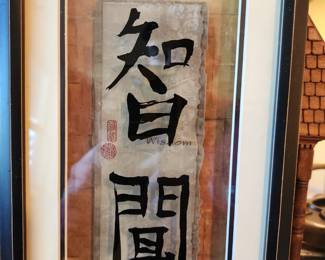 智
Wisdom
聞